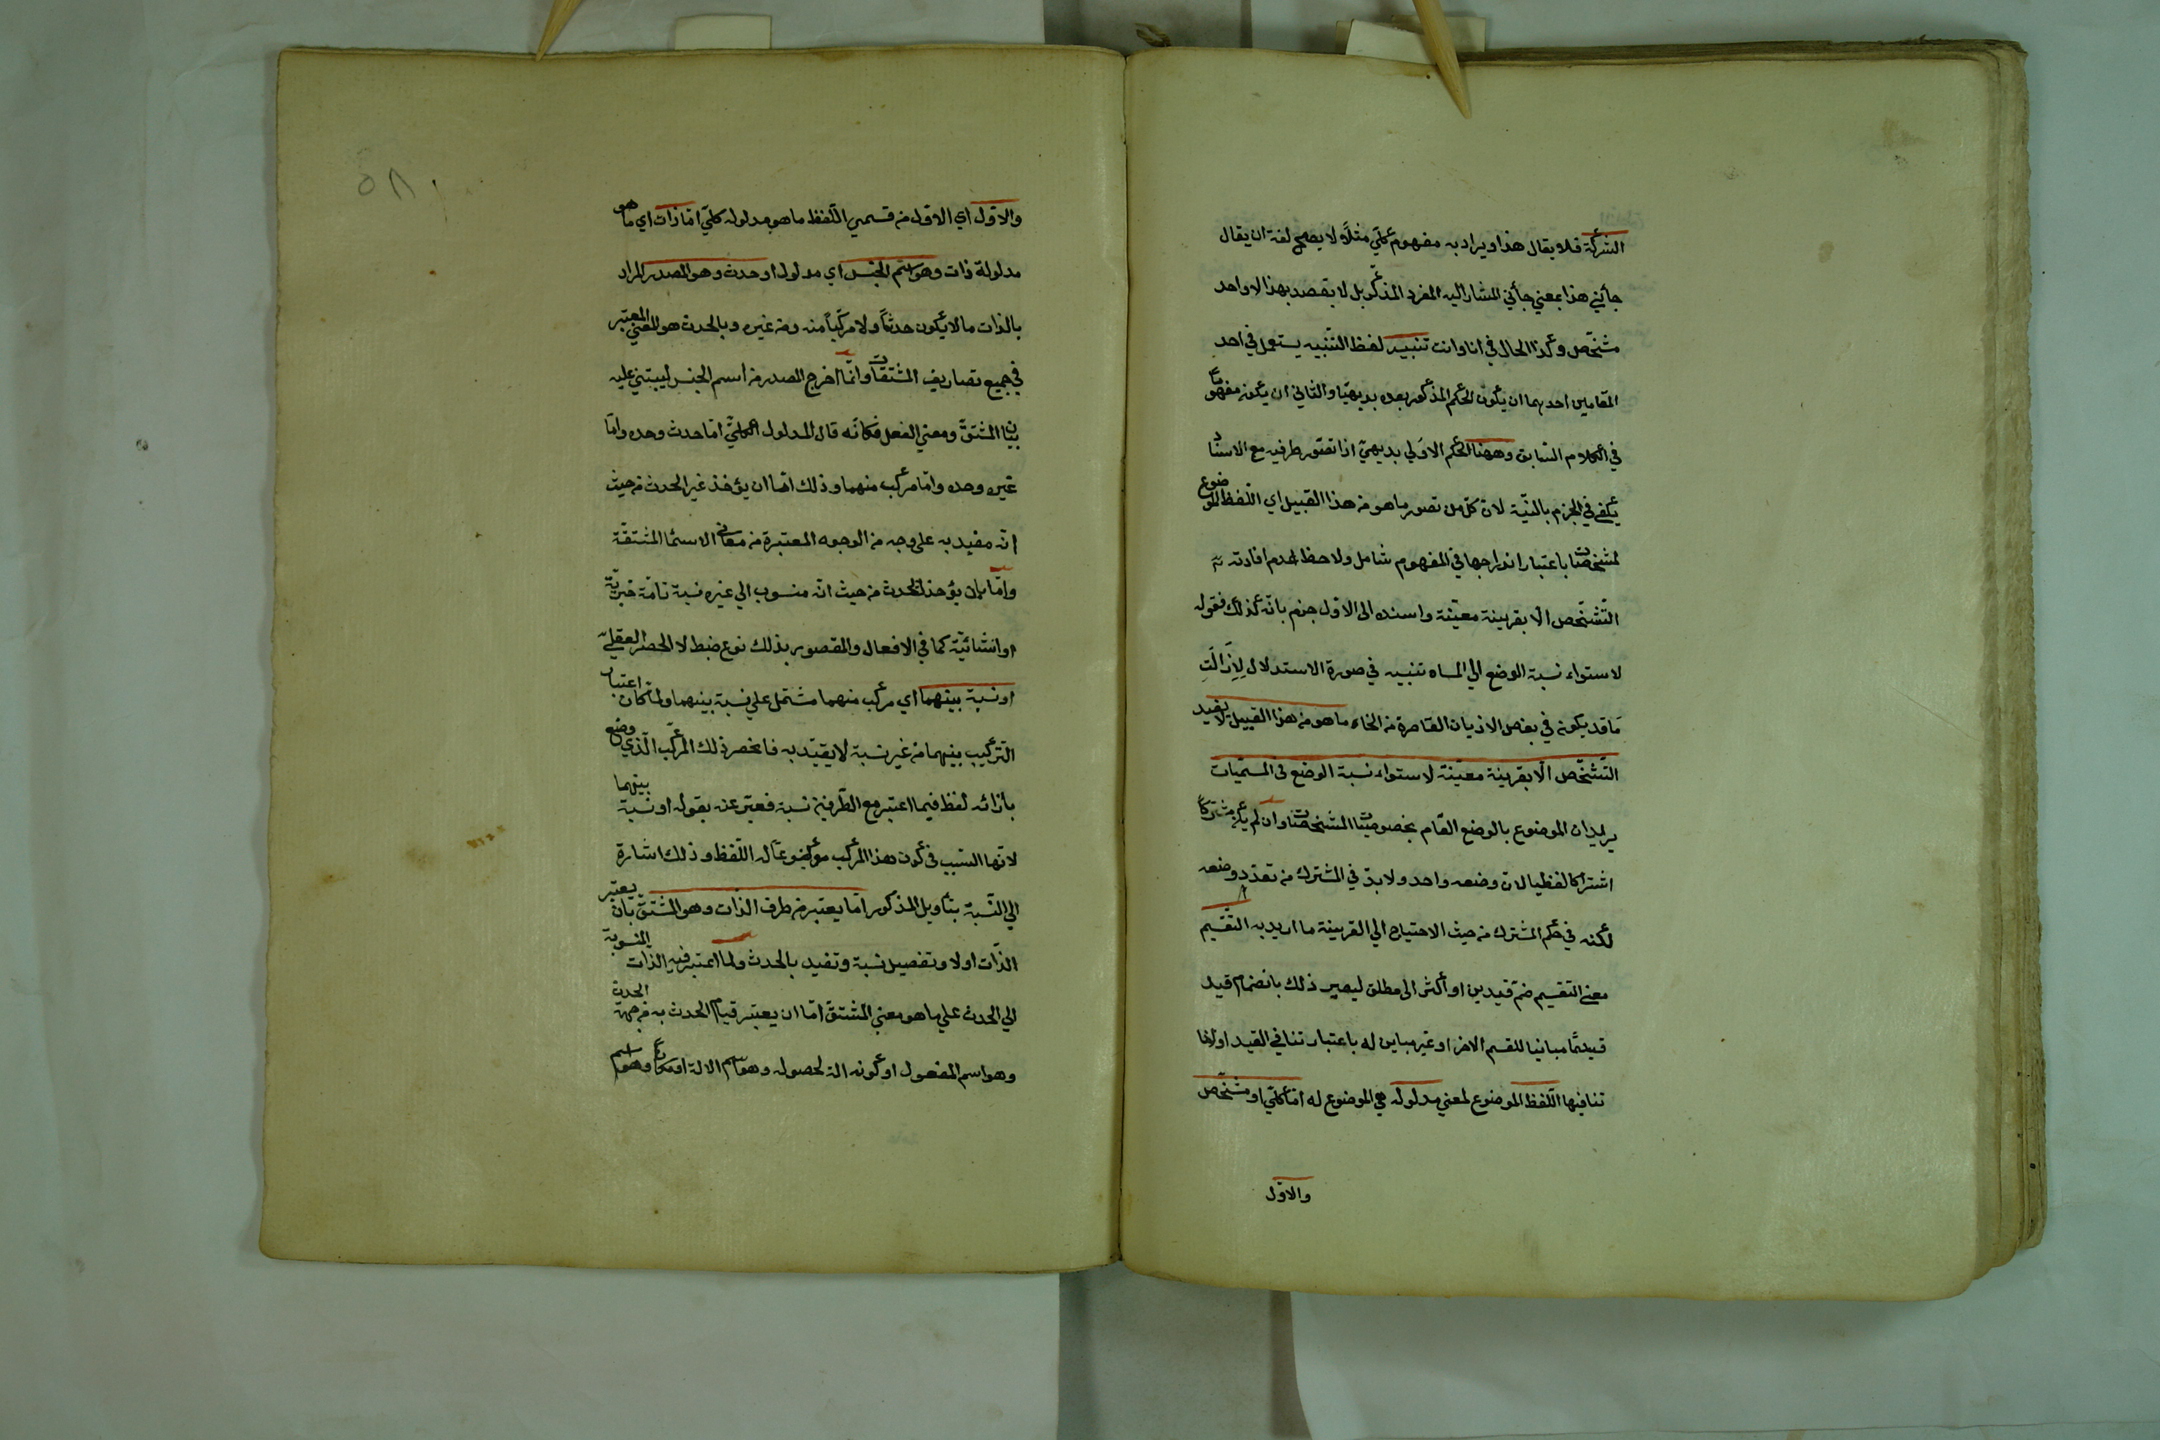 الشركة فلا يقال هذا ويراد به مفهوم كلي مثلا لا يصح لغة ان يقال
جأني هذا بمعني جأني المشار اليه المفرد المذكر بل لا يقصد بهذا الا واحد
مشخص وكذا الحال في انا وانت تنبيه لفظ التنبيه يستعمل في احد
المقامين احدهما ان يكون الحكم المذكور بعده بديهيا والثاني ان يكون مفهوما
في الكلام السابق وههنا الحكم الاولي بديهي اذا تصور طرفيه مع الاسناد
يكفي في الجزم بالنسبة لان كل من تصور ما هو من هذا القبيل اي اللفظ الموضوع
لمشخصات باعتبار اندراجها في المفهوم شامل ولاحظ لعدم افادته
التشخص الا بقرينة معينة واسنده الى الاول جزم بانه كذلك فقوله
لاستواء نسبة الوضع الي المساه تنبيه في صورة الاستدلال لازالت
ما قد يكون في بعض الاذهان القاصرة من الخاء ما هو من هذا القبيل لا يفيد
التشخص الا بقرينة معينة لاستواء نسبة الوضع في المسميات
يريد ان الموضوع بالوضع العام بخصوصيات المشخصات وان لم يكن مشتركا
اشتراكا لفظيا لان وضعه واحد ولا بد في المشترك من تعدد وضعه
لكنه في حكم المشترك من حيث الاحتياج الي القرينة ما اريد به التقسيم
معني التقسيم ضم قيدين او أكثر الى مطلق ليصير ذلك بانضمام قيد
قيد قسما مباينا للقسم الاخر او غير مباين له باعتبار تنافي القيد اولا
تنافيها اللفظ الموضوع لمعني مدلوله هي الموضوع له اما كلي او مشخص
والاول
والاول اي الاول من قسمي اللفظ ما هو مدلوله كلي اما ذات اي ما هو
مدلولة ذات وهو اسم الجنس اي مدلوله او حدث وهو المصدر المراد
بالذات ما لا يكون حدثا ولا مركبا منه ومن غيره وبالحدث هو المعني المعتبر
في جميع تصاريف المشتقات وانما اخرج المصدر من اسم الجنس ليبتني عليه
بيان المشتق ومعني الفعل فكانه قال المدلول الكلي اما حدث وحده واما
غيره وحده واما مركب منهما وذلك اما ان يؤخذ غير الحدث من حيث
انه مفيد به علي وجه من الوجوه المعتبرة من معاني الاسماء المشتقة
واما بان يؤخذ الحدث من حيث انه منسوب الي غيره نسبة تامة خبرية
او انشائية كما في الافعال والمقصور بذلك نوع ضبط لا الحصر العقلي
او نسبة بينهما اي مركب منهما مشتمل علي نسبة بينهما ولما كان اعتبار
التركيب بينهما من غير نسبة لا يقيد به فانحصر ذلك المركب الذي وضع
بازائه لفظ فيما اعتبر مع الطرفين نسبة فعبر عنه بقوله او نسبة بينهما
لانها السبب في كون هذا المركب موضوعا له اللفظ وذلك اشارة
الي النسبة بتأويل المذكور اما يعتبر من طرف الذات وهو المشتق بان يعتبر
الذات اولا وتفصيل نسبة وتفيد بالحدث ولما اعتبر فيه الذات المنسوبة
الي الحدث علي ما هو معني المشتق اما ان يعتبر قيام الحدث به من جهة الحدث
وهو اسم المفعول او كونه الة لحصوله وهو اسم الالة او مكان وهو اسم